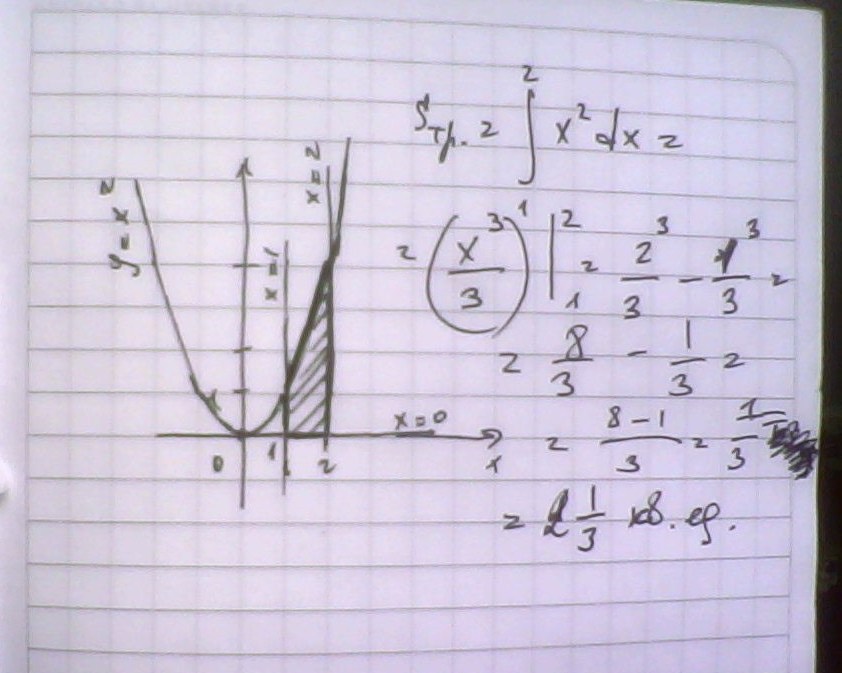 y = x²
x = 1
x = 2
0 1 2 x
x = 0
Sтр. = ∫₁² x² dx =
= (x³/3) |₁² = 2³/3 − 1³/3 =
= 8/3 − 1/3 =
= (8 − 1)/3 = 7/3
= 2 1/3 кв. ед.